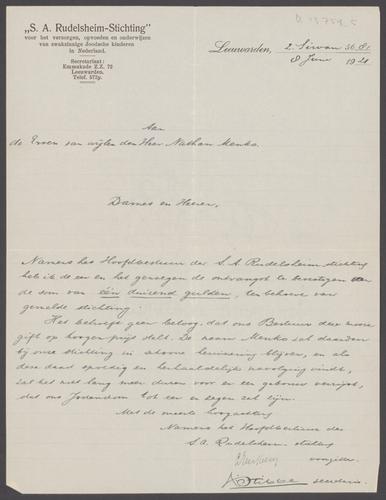 „S. A. Rudelsheim-Stichting"
voor het verzorgen, opvoeden en onderwijzen
van zwakzinnige Joodsche kinderen
in Nederland.
Secretariaat:
Emmakade Z.Z. 72
Leeuwarden.
Telef. 573p.
Leeuwarden, 2 Siwan 5681
8 Juni 1921
Aan
de Erven van wijlen den Heer Nathan Menko.
Dames en Heeren,
Namens het Hoofdbestuur der S. A. Rudelsheim-stichting
heb ik de eer en het genoegen de ontvangst te bevestigen van
de som van één duizend gulden, ten behoeve van
gemelde stichting.
Het behoeft geen betoog, dat ons Bestuur deze mooie
gift op hoogen prijs stelt. De naam Menko zal daardoor
bij onze stichting in
blijven, en als
deze daad spoedig en herhaaldelijk navolging vindt,
zal het niet lang meer duren voor er een gebouw verrijst,
dat ons Jodendom tot eer en zegen zal zijn.
Met de meeste hoogachting
Namens het Hoofdbestuur der
S.A. Rudelsheim-stichting
voorzitter
secretaris